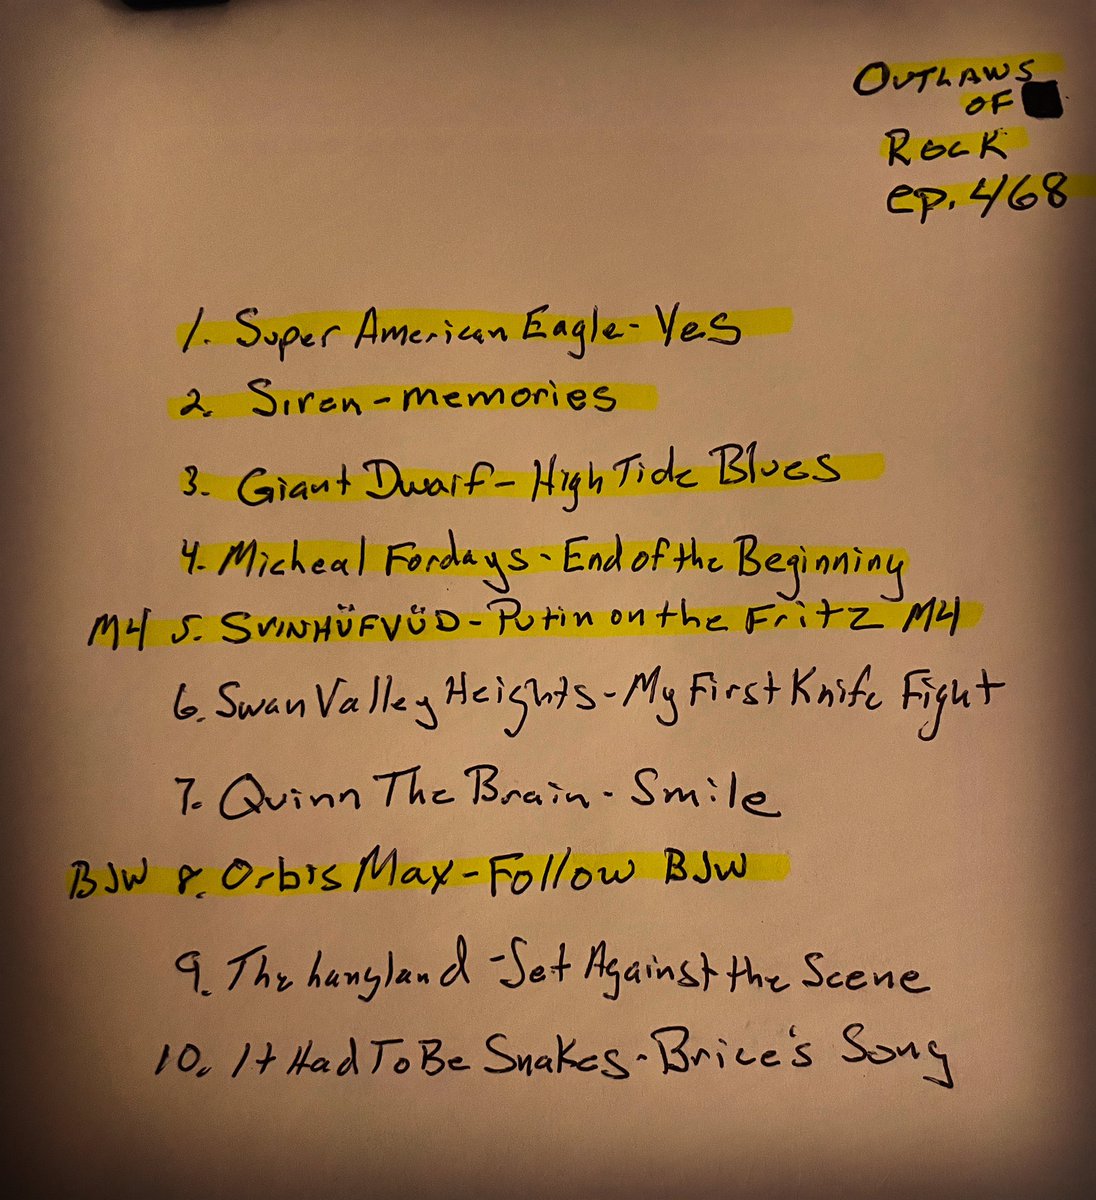 OUTLAWS
OF
ROCK
ep. 468
1. Super American Eagle - Yes
2. Siren - memories
3. Giant Dwarf - High Tide Blues
4. Micheal Fordays - End of the Beginning
M4 5. SVINHÜFVÜD - Putin on the Fritz M4
6. Swan Valley Heights - My First Knife Fight
7. Quinn The Brain - Smile
BJW 8. Orbis Max - Follow BJW
9. The hangland - Set Against the Scene
10. It Had To Be Snakes - Brice's Song